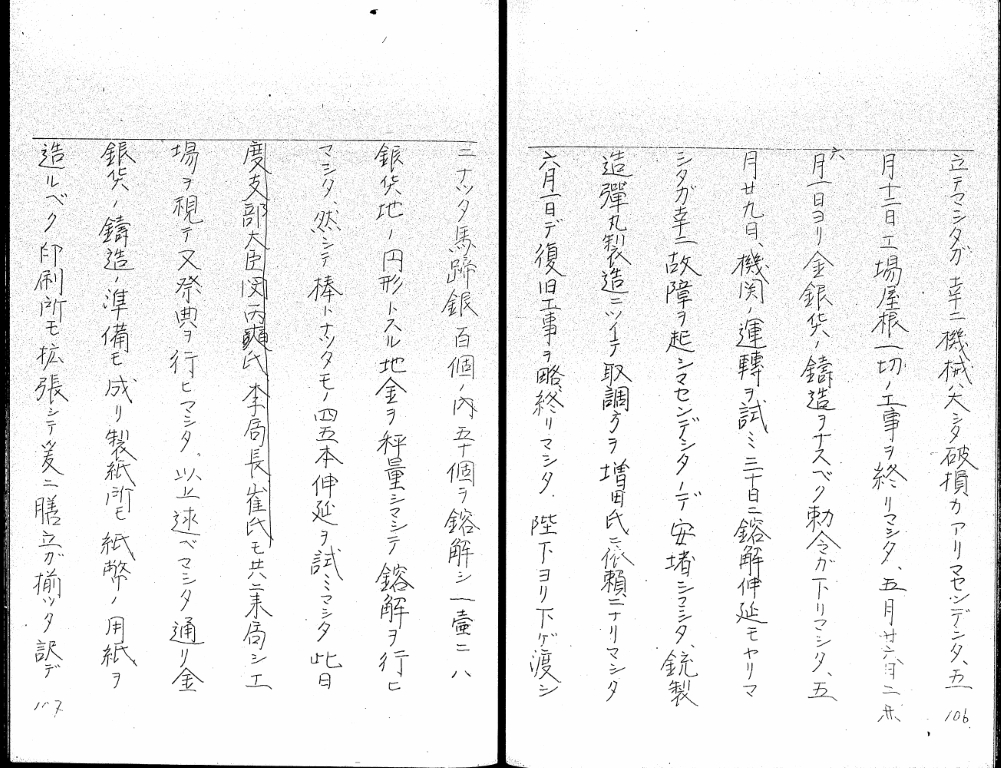 立テマシタガ幸ニ機械ハ大シタ破損カアリマセンデシタ、五
月十二日工場屋根一切ノ工事ヲ終リマシタ、五月廿六日ニ
六
月一日ヨリ金銀貨ノ鋳造ヲナスベク勅令ガ下リマシタ、五
月廿九日、機関ノ運轉ヲ試ミ三十日ニ鎔解伸延モヤリマ
シタガ幸ニ故障ヲ起シマセンデシタノデ安堵シマシタ、銃製
造彈丸製造ニツイテ取調方ヲ増田氏ニ依頼ニナリマシタ
六月一日デ復旧工事ヲ略終リマシタ、陛下ヨリ下ゲ渡シ
106
ニナツタ馬蹄銀百個ノ内五十個ヲ鎔解シ一壷ニハ
銀貨地ノ円形トスル地金ヲ秤量シマシテ鎔解ヲ行ヒ
マシタ、然シテ棒トナツタモノ四五本伸延ヲ試ミマシタ此日
度支部大臣閔丙奭氏李局長崔氏モ共ニ来局シ工
場ヲ視テ又祭典ヲ行ヒマシタ、以上述ベマシタ通リ金
銀貨ノ鋳造ノ準備モ成リ製紙所モ紙幣ノ用紙ヲ
造ルベク印刷所モ拡張シテ爰ニ膳立ガ揃ツタ訳デ
107